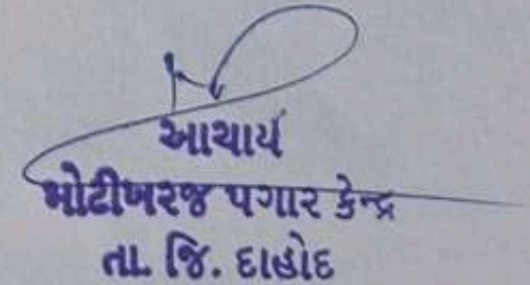 આચાર્ય
મોટીખરજ પગાર કેન્દ્ર
તા. જિ. દાહોદ